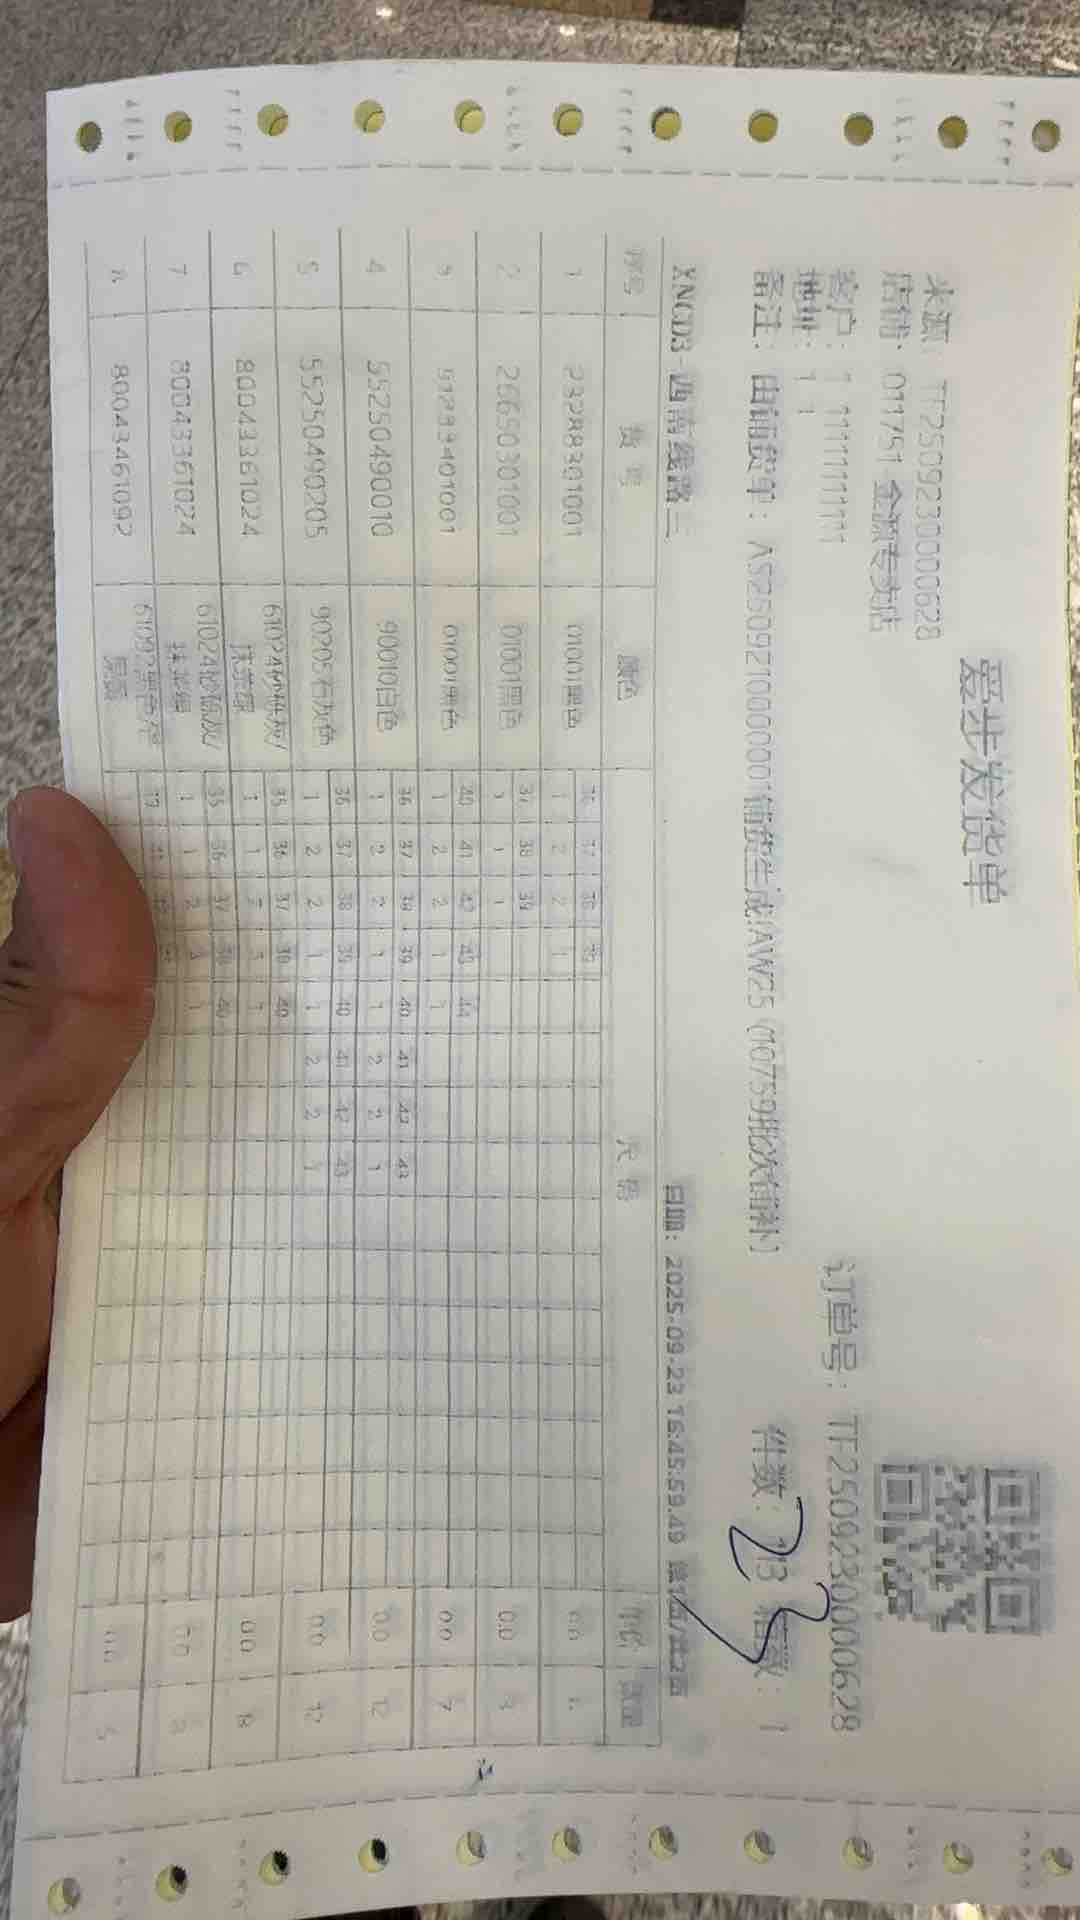 爱步发货单
来源: TF250923000628
店铺: 011751 金源专卖店 订单号: TF250923000628
客户: 1 111111111
地址: 1
备注: 由铺货单: AS250921000001铺货生成(AW25 (10759批次铺补) 件数: 箱数: 1
23
XNCD3-西南线路三 日期: 2025-09-23 16:45:59.49 第1页/共2页
序号 货号 颜色 尺码 单价 数量
36 37 38 39
1 23288301001 01001黑色 1 2 2 1 0.0
37 38 39
2 26650301001 01001黑色 1 1 1 0.0 3
40 41 42 43 44
3 51283401001 01001黑色 1 2 2 1 1 0.0 7
36 37 38 39 40 41 42 43
4 55250490010 90010白色 1 2 2 1 1 2 2 1 0.0 12
36 37 38 39 40 41 42 43
5 55250490205 90205石灰色 1 2 2 1 1 2 2 1 0.0 12
35 36 37 38 40
6 80043361024 61024砂砾灰/ 1 1 0.0 8
35 36 37 38 40
7 80043361024 61024砂砾灰/ 1 1 2 3 1 0.0 8
8 80043461092 0.0 5